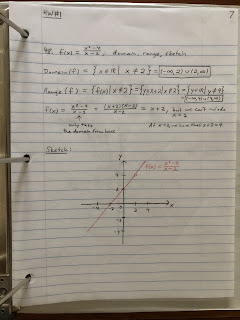 HW#1
7
48. f(x) = x²-4 / x-2 ; domain, range, sketch
Domain(f) = {x∈ℝ | x≠2} = (-∞,2)∪(2,∞)
Range(f) = {f(x) | x≠2} = {y=x+2 | x≠2} = {y∈ℝ | y≠4}
= (-∞,4)∪(4,∞)
f(x) = x²-4 / x-2 = (x+2)(x-2) / x-2 = x+2, but we can't include x=2
the domain from here
At x=2, we have that x+2=4
Sketch:
y
f(x) = x²-4 / x-2
x